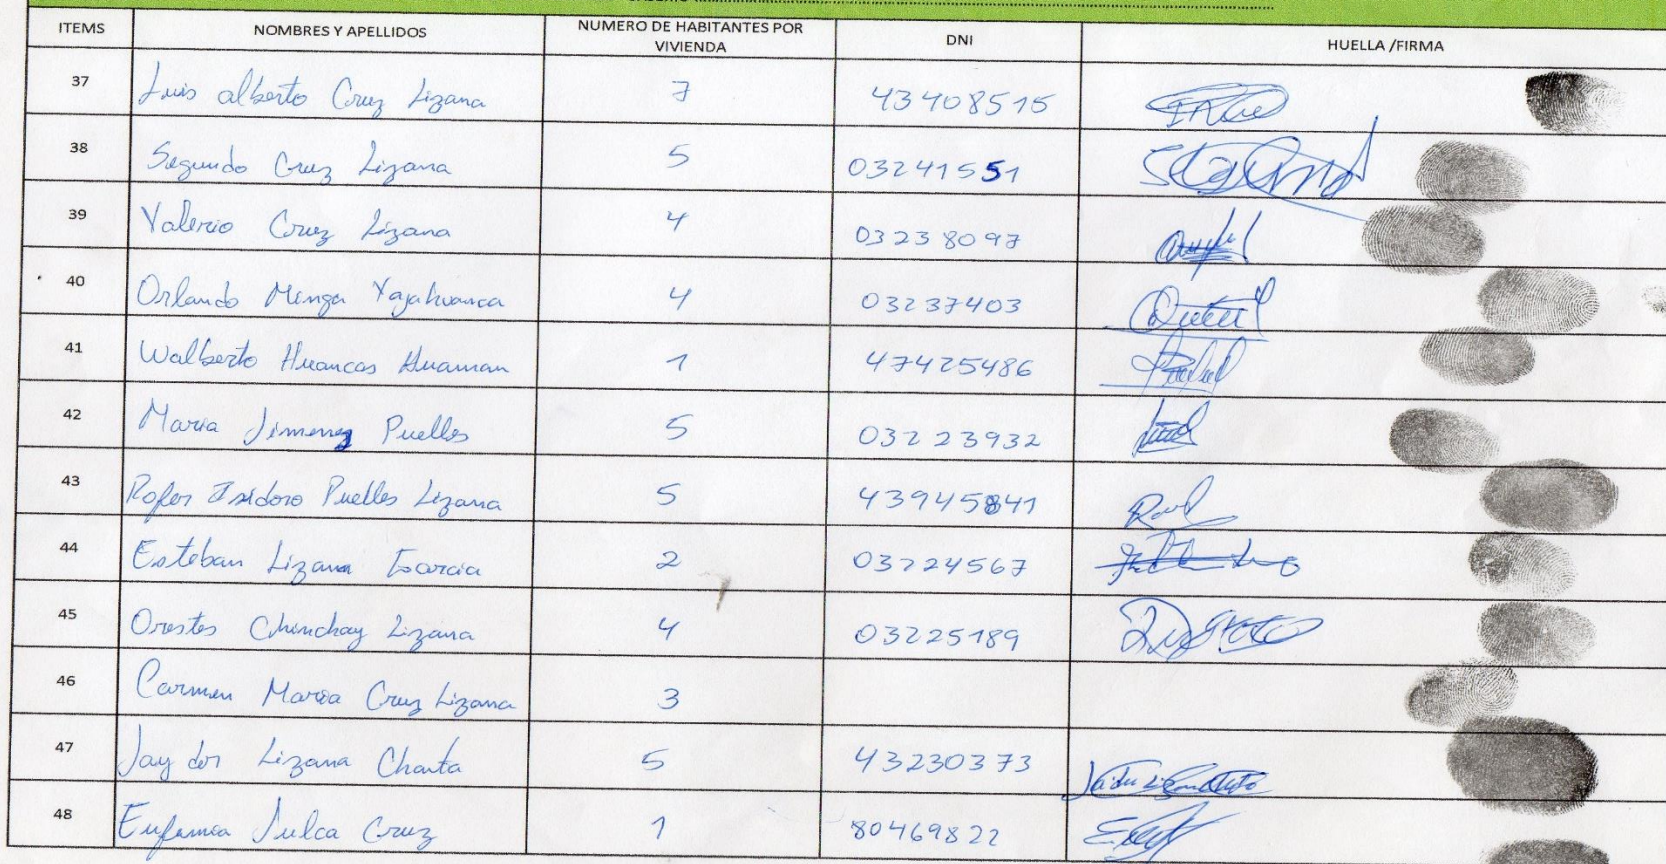 ITEMS NOMBRES Y APELLIDOS NUMERO DE HABITANTES POR VIVIENDA DNI HUELLA /FIRMA
37 Luis alberto Cruz Lizana 7 43408515
38 Segundo Cruz Lizana 5 03241551
39 Valerio Cruz Lizana 4 03238097
40 Orlando Minga Yajahuanca 4 03237403
41 Walberto Huancas Huaman 1 47425486
42 Maria Jimenez Puelles 5 03223932
43 Isidoro Puelles Lizana 5 43945841
44 Esteban Lizana Garcia 2 03224567
45 Orestes Chinchay Lizana 4 03225189
46 Carmen Maria Cruz Lizana 3
47 Jayder Lizana Chanta 5 43230373
48 Eufemia Julca Cruz 1 80469822